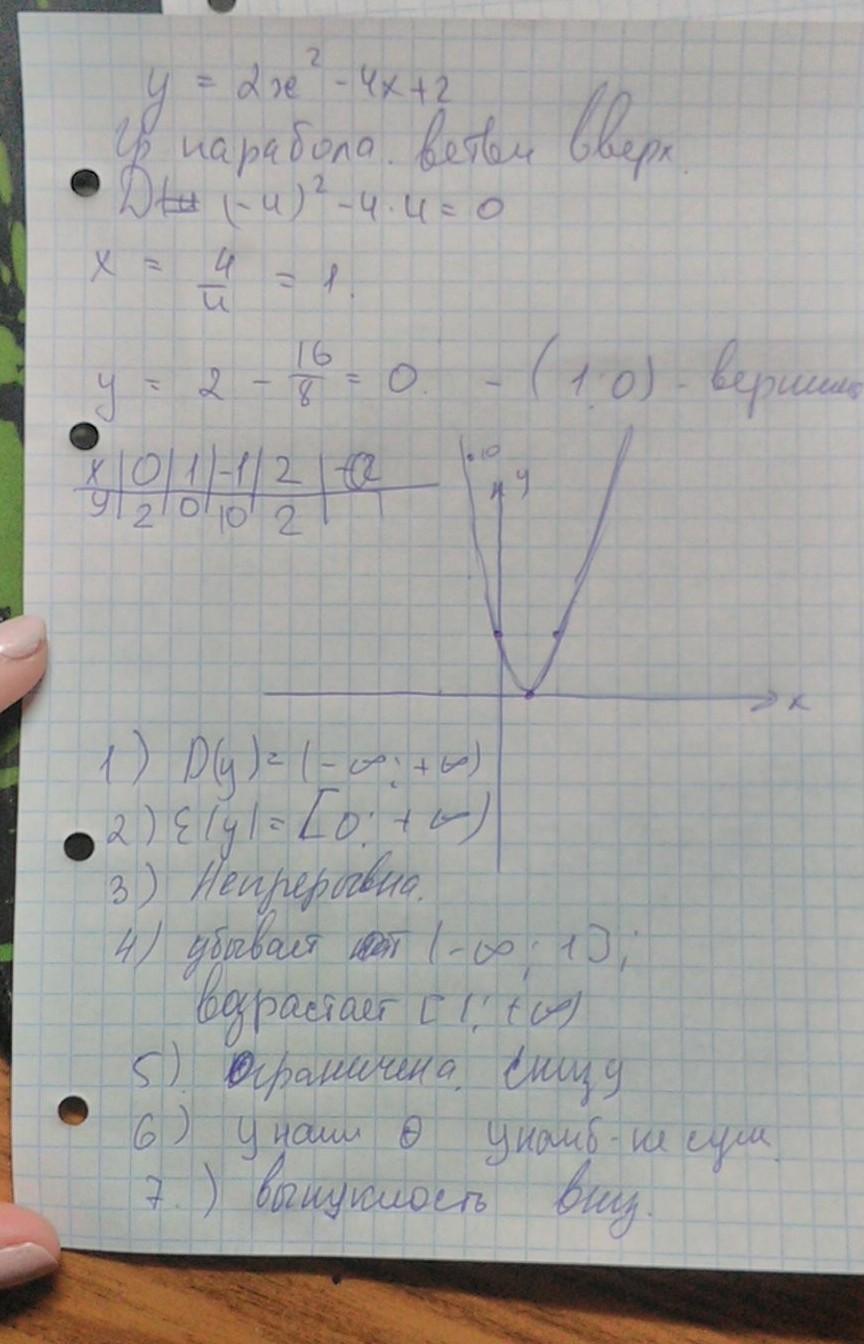 y = 2x² - 4x + 2
гр парабола. ветви вверх.
D (-4)² - 4 · 4 = 0
x = 4/4 = 1.
y = 2 - 16/8 = 0. - (1; 0) - вершина
x | 0 | 1 | -1 | 2 |
y | 2 | 0 | 10 | 2 |
10
y
x
1) D(y) = (-∞; +∞)
2) E(y) = [0; +∞)
3) Непрерывна.
4) убывает (-∞; 1];
возрастает [1; +∞)
5) Ограничена. снизу
6) y наим 0 y наиб - не сущ.
7.) выпуклость вниз.